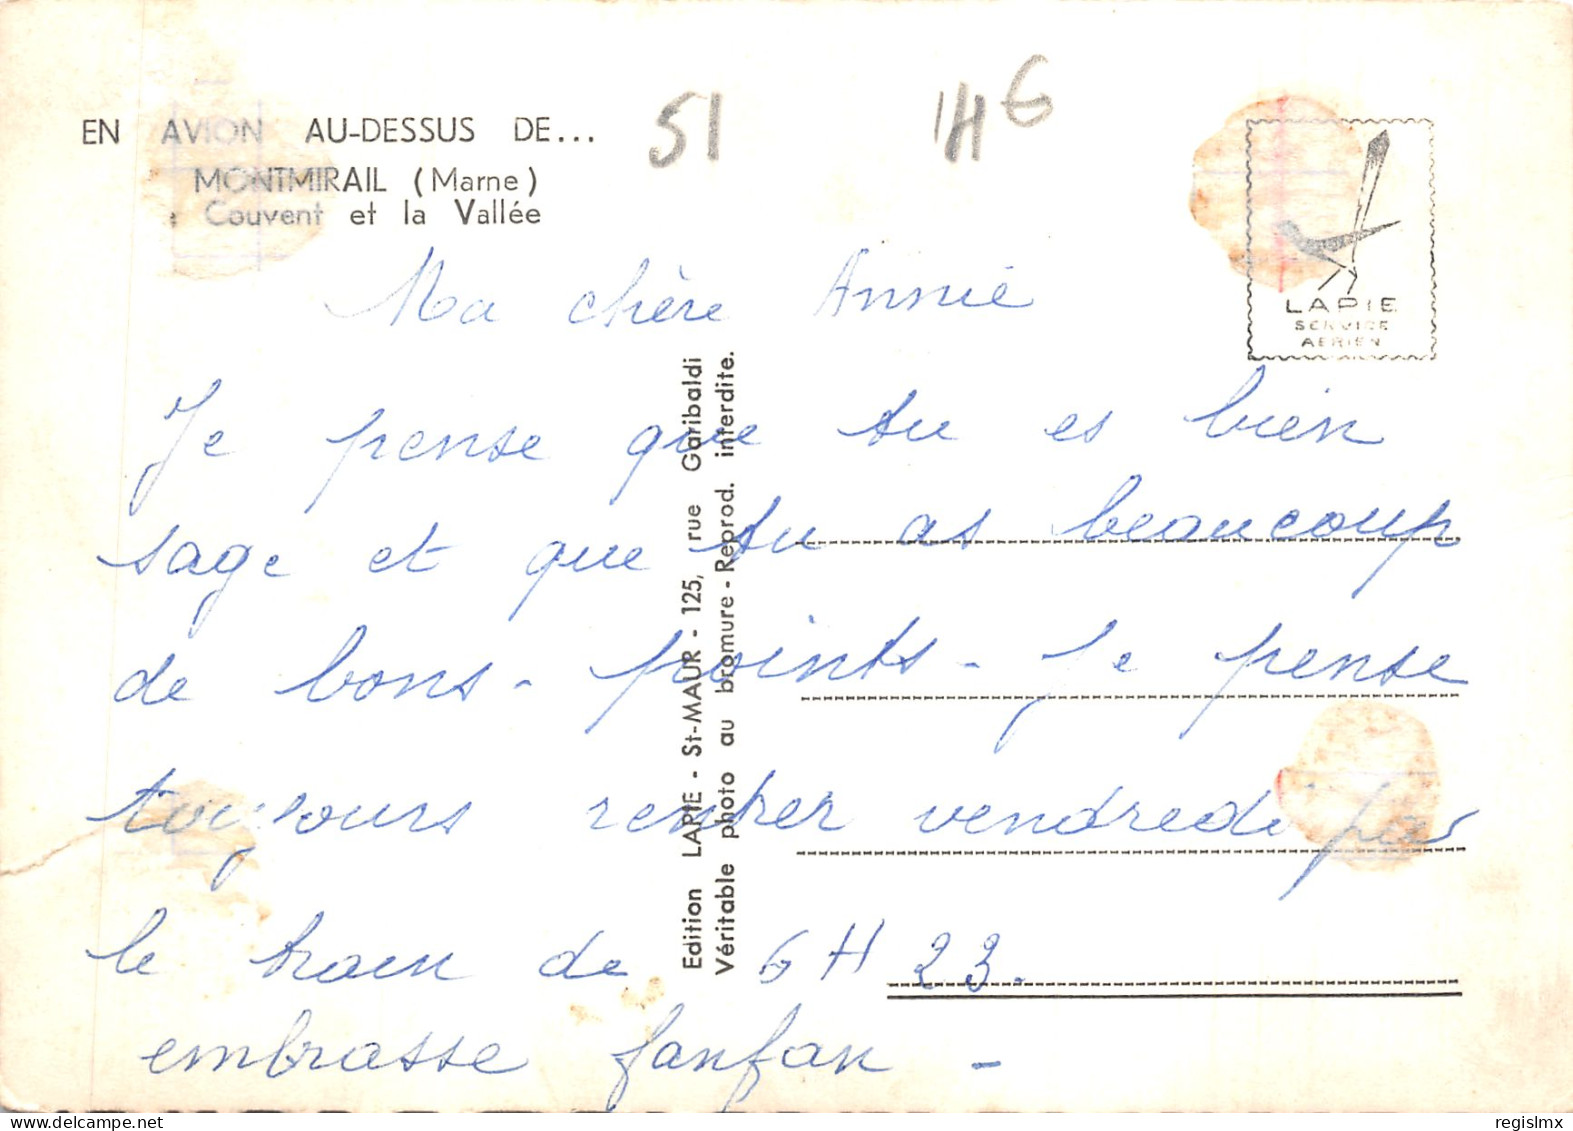 EN AVION AU-DESSUS DE...
MONTMIRAIL (Marne)
Couvent et la Vallée
51
1H6
LAPIE
SERVICE
AERIEN
Ma chère Annie
Je pense que tu es bien
sage et que tu as beaucoup
de bons - points - Je pense
toujours rentrer vendredi par
le train de 6 H 23.
embrasse fanfan -
Edition LAPIE - St-MAUR - 125, rue Garibaldi
Véritable photo au bromure - Reprod. interdite.
regislmx